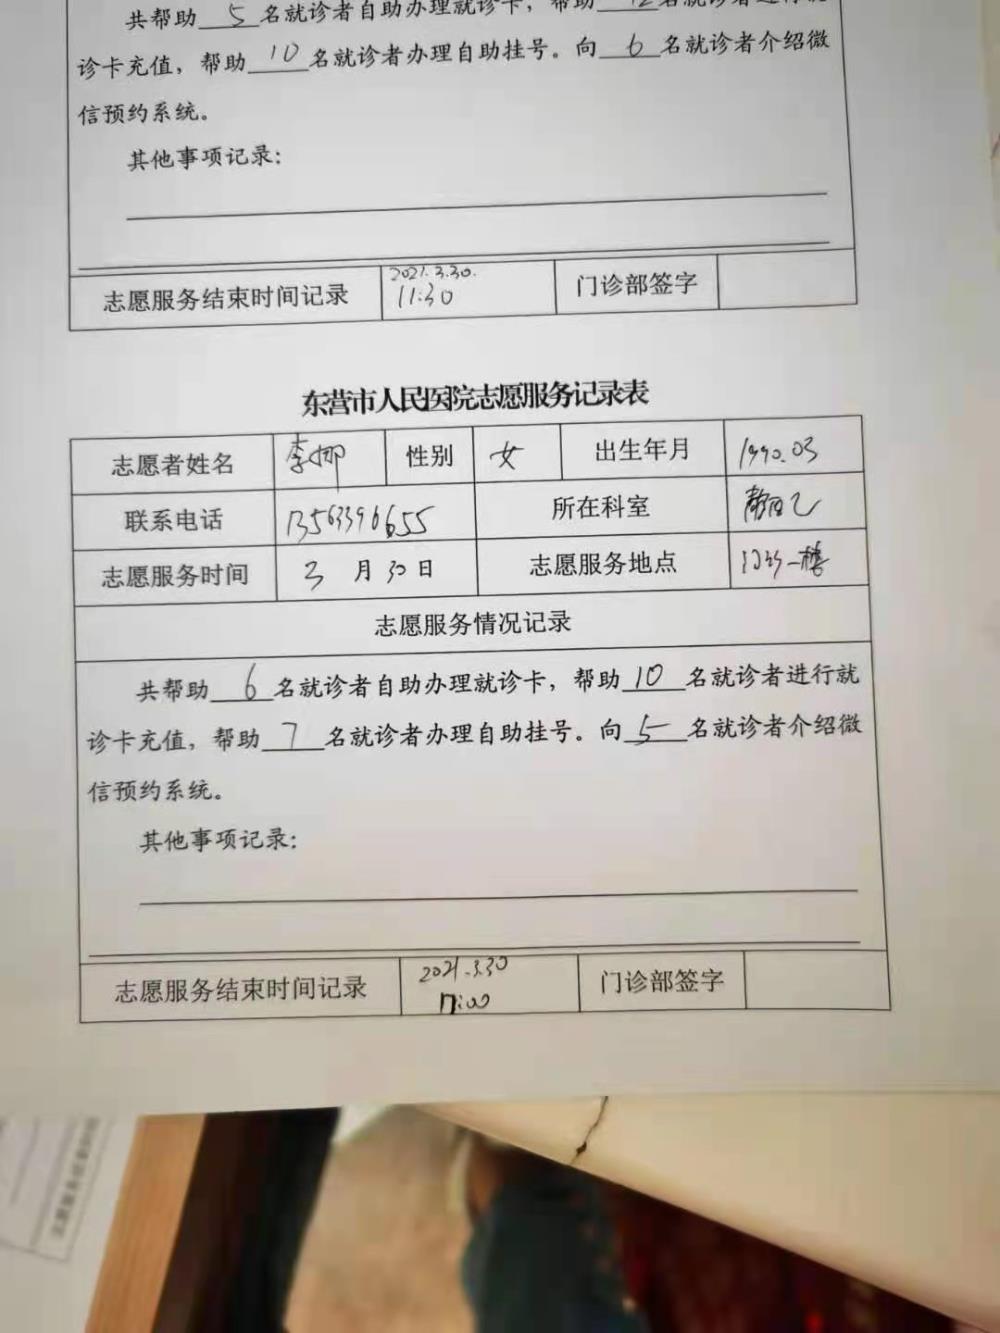 共帮助 5 名就诊者自助办理就诊卡，帮助 12 名就诊者进行就
诊卡充值，帮助 10 名就诊者办理自助挂号。向 6 名就诊者介绍微
信预约系统。
其他事项记录：
志愿服务结束时间记录 2021.3.30. 11:30 门诊部签字
东营市人民医院志愿服务记录表
志愿者姓名 李娜 性别 女 出生年月 1990.03
联系电话 13563396655 所在科室
志愿服务时间 3 月 30 日 志愿服务地点 门诊一楼
志愿服务情况记录
共帮助 6 名就诊者自助办理就诊卡，帮助 10 名就诊者进行就
诊卡充值，帮助 7 名就诊者办理自助挂号。向 5 名就诊者介绍微
信预约系统。
其他事项记录：
志愿服务结束时间记录 2021.3.30 17:00 门诊部签字